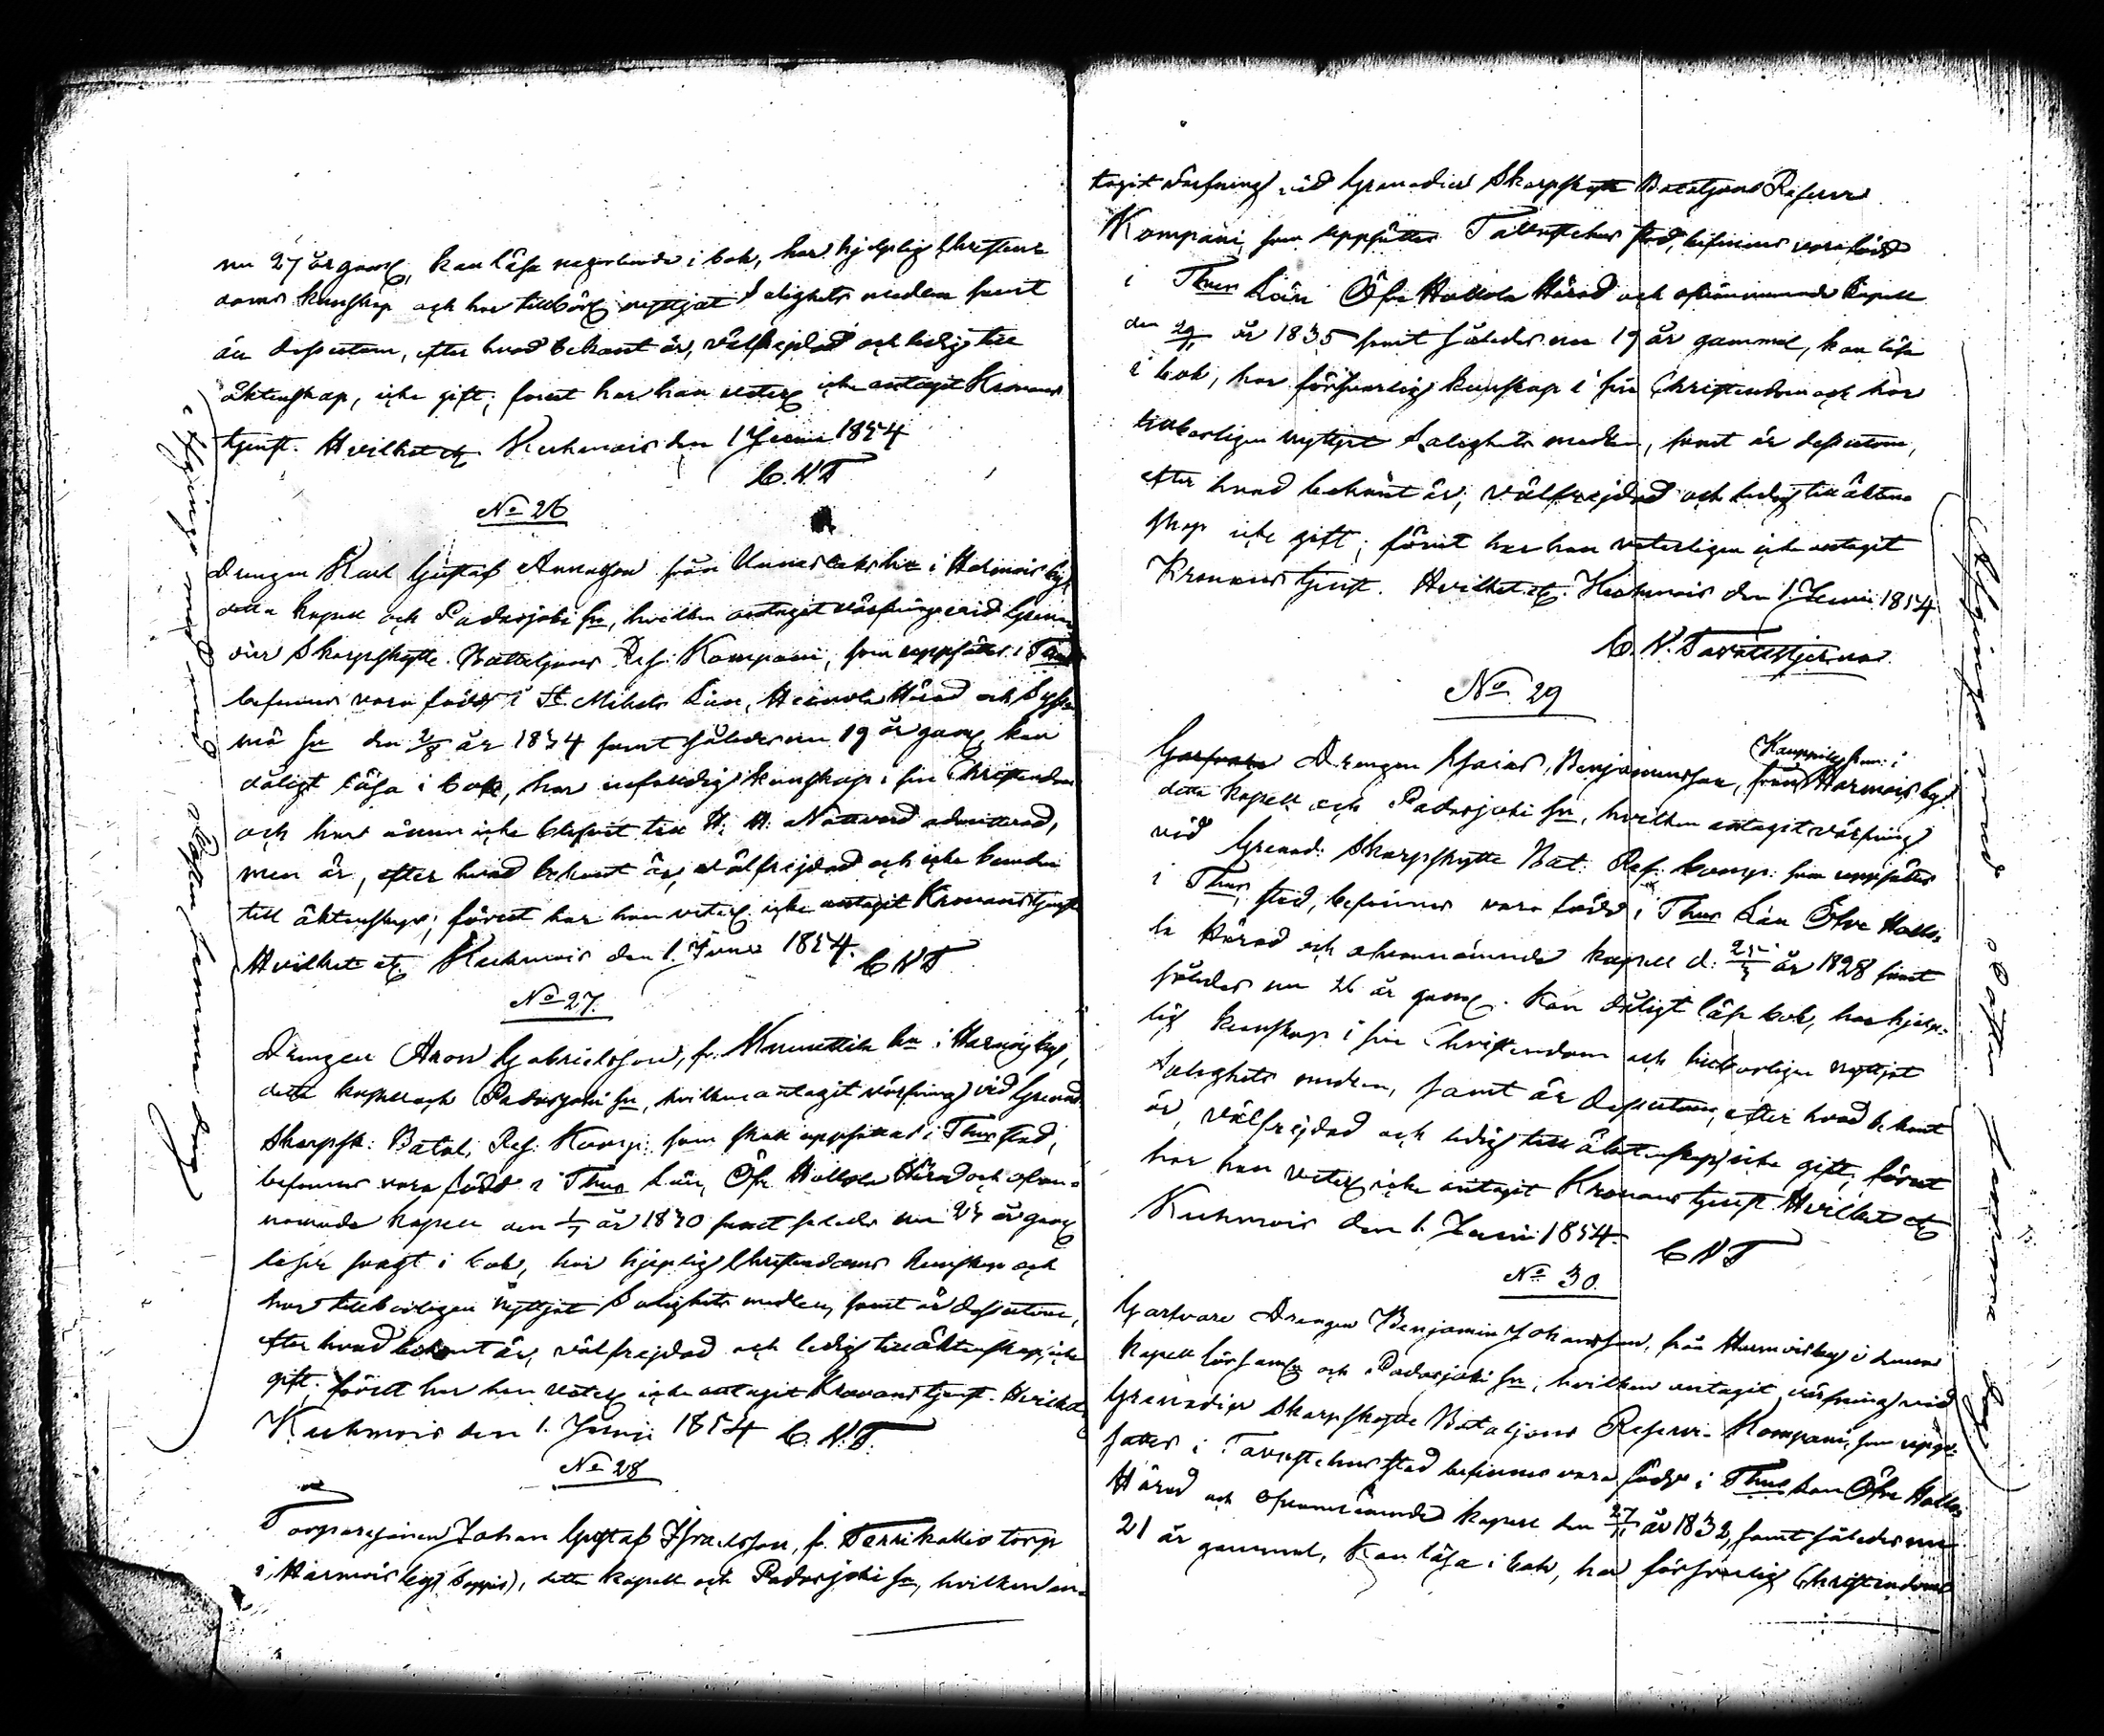 nu 27 år gaml, kan läsa någorlunda i bok, har hjelplig Christen-
doms kunskap och har tillbörl nyttjat Salighets medlen samt
är dessutom, efter hvad bekant är, välfrejdad och ledig till
äktenskap, icke gift; förut har han veterl icke antagit Kronans
tjenst. Hvilket etc Kuhmois den 1 Junii 1854
C.N.T
No 26
Drengen Karl Gustaf Annasson från i Harmois by,
detta kapell och Padasjoki sn, hvilken antagit värfning vid Grena-
dier Skarpskytte Battaljons Res. Kompani, som uppsättes i
befinnes vara född i St. Michels Län, Heinola Härad och Sysmä
sn den år 1834 samt således nu 19 år gaml, kan
dåligt läsa i bok, har enfaldig kunskap i sin Christendom
och har ännu icke blifvit till H. H. Nattvard admitterad,
men är, efter hvad bekant är, välfrejdad och icke bunden
till äktenskap; förut har han veterl icke antagit Kronans tjenst
Hvilket etc. Kuhmois den 1. Junii 1854.
C N T
No 27.
Drengen Aron Gabrielsson, fr. Knuuttila hn i Harmois by,
detta kapell och Padasjoki sn, hvilken antagit värfning vid Grenad.
Skarpsk: Batal. Res. Komp: som skall uppsättas i Thus stad,
befinnes vara född i Thus Län, Öfre Hollola Härad och ofvan-
nämnde kapell den år 1830 samt således nu år gaml
läser svagt i bok, har hjelplig Christendoms kunskap och
har tillbörligen nyttjat Salighets medlen, samt är dessutom,
efter hvad bekant är, välfrejdad och ledig till äktenskap, icke
gift. förut har han veterl icke antagit Kronans tjenst. Hvilket
Kuhmois den 1. Junii 1854 C. N. T.
No 28
Torparesonen Johan Gustaf Israelsson, fr. Terrikallio torp
i Harmois by, detta kapell och Padasjoki sn, hvilken an-
tagit värfning vid Grenadier Skarpskytte Bataljons Reserve
Kompani, som uppsättes Tavastehus stad, befinnes vara född
i Thus Län Öfre Hollola Härad och ofvannämnde Kapell
den 29/11 år 1835 samt således nu 19 år gammal, kan läsa
i bok, har försvarlig kunskap i sin Christendom och har
tillbörligen nyttjat Salighets medlen, samt är dessutom,
efter hvad bekant är, välfrejdad och ledig till äkten-
skap icke gift; förut har han veterligen icke antagit
Kronans tjenst. Hvilket etc. Kuhmois den 1. Junii 1854
C. N. Tavaststjerna.
No 29
Kauppila hn: i
Garfvare Drengen Esaias Benjaminsson, från Harmois by
detta kapell och Padasjoki sn, hvilken antagit värfning
vid Grenad: Skarpskytte Bat: Res. Komp: som uppsättes
i Thus stad, befinnes vara född i Thus Län Öfre Hollo-
la Härad och ofvannämnde kapell d: år 1828 samt
således nu 26 år gaml. Kan dåligt läsa bok, har hjelp-
lig kunskap i sin Christendom och tillbörligen nyttjat
Salighets medlen, samt är dessutom, efter hvad bekant
är, välfrejdad och ledig till äktenskap, icke gift; förut
har han veterl icke antagit Kronans tjenst. Hvilket etc
Kuhmois den 1. Junii 1854. C N T
No 30.
Garfvare Drengen Benjamin Johansson, från Harmois by i denna
Kapell församl och Padasjoki sn, hvilken antagit värfning vid
Grenadier Skarpskytte Bataljons Reserve Kompani, som upp-
sättes i Tavastehus stad befinnes vara född i Thus Län Öfre Hollola
Härad och ofvannämnde kapell den 27/11 år 1832, samt således nu
21 år gammal, Kan läsa i bok, har försvarlig Christendoms
Afgingo med Posten samma dag
Afgingo med Posten samma dag